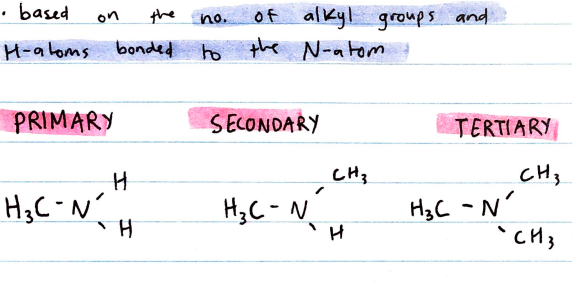 · based on the no. of alkyl groups and
H-atoms bonded to the N-atom
PRIMARY SECONDARY TERTIARY
H CH₃ CH₃
H₃C - N H₃C - N H₃C - N
H H CH₃